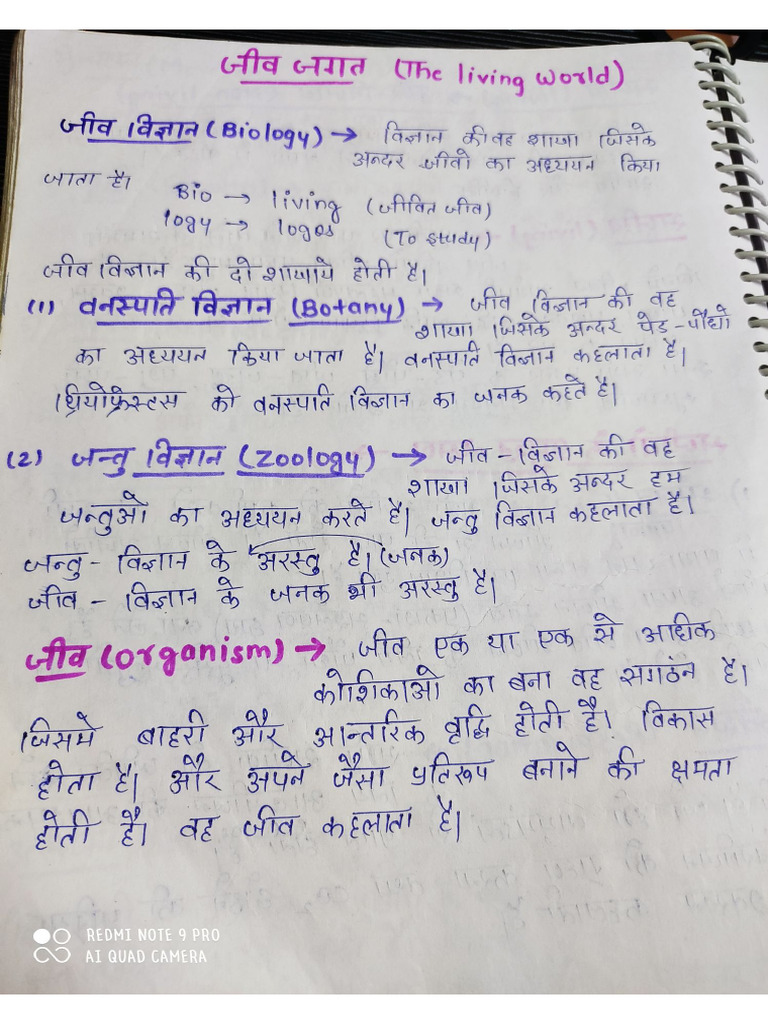 जीव जगत (The living world)
जीव विज्ञान (Biology) → विज्ञान की वह शाखा जिसके
अन्दर जीवो का अध्ययन किया
जाता है।
Bio → living (जीवित जीव)
logy → logos (To study)
जीव विज्ञान की दो शाखाये होती है।
(1) वनस्पति विज्ञान (Botany) → जीव विज्ञान की वह
शाखा जिसके अन्दर पेड़-पौधो
का अध्ययन किया जाता है। वनस्पति विज्ञान कहलाता है।
थ्रियोफ्रेस्टस को वनस्पति विज्ञान का जनक कहते है।
(2) जन्तु विज्ञान (Zoology) → जीव-विज्ञान की वह
शाखा जिसके अन्दर हम
जन्तुओ का अध्ययन करते है। जन्तु विज्ञान कहलाता है।
जन्तु-विज्ञान के अरस्तु है। (जनक)
जीव-विज्ञान के जनक भी अरस्तु है।
जीव (organism) → जीव एक या एक से अधिक
कोशिकाओ का बना वह सगठंन है।
जिसमे बाहरी और आन्तरिक वृद्धि होती है। विकास
होता है। और अपने जैसा प्रतिरूप बनाने की क्षमता
होती है। वह जीव कहलाता है।
REDMI NOTE 9 PRO
AI QUAD CAMERA